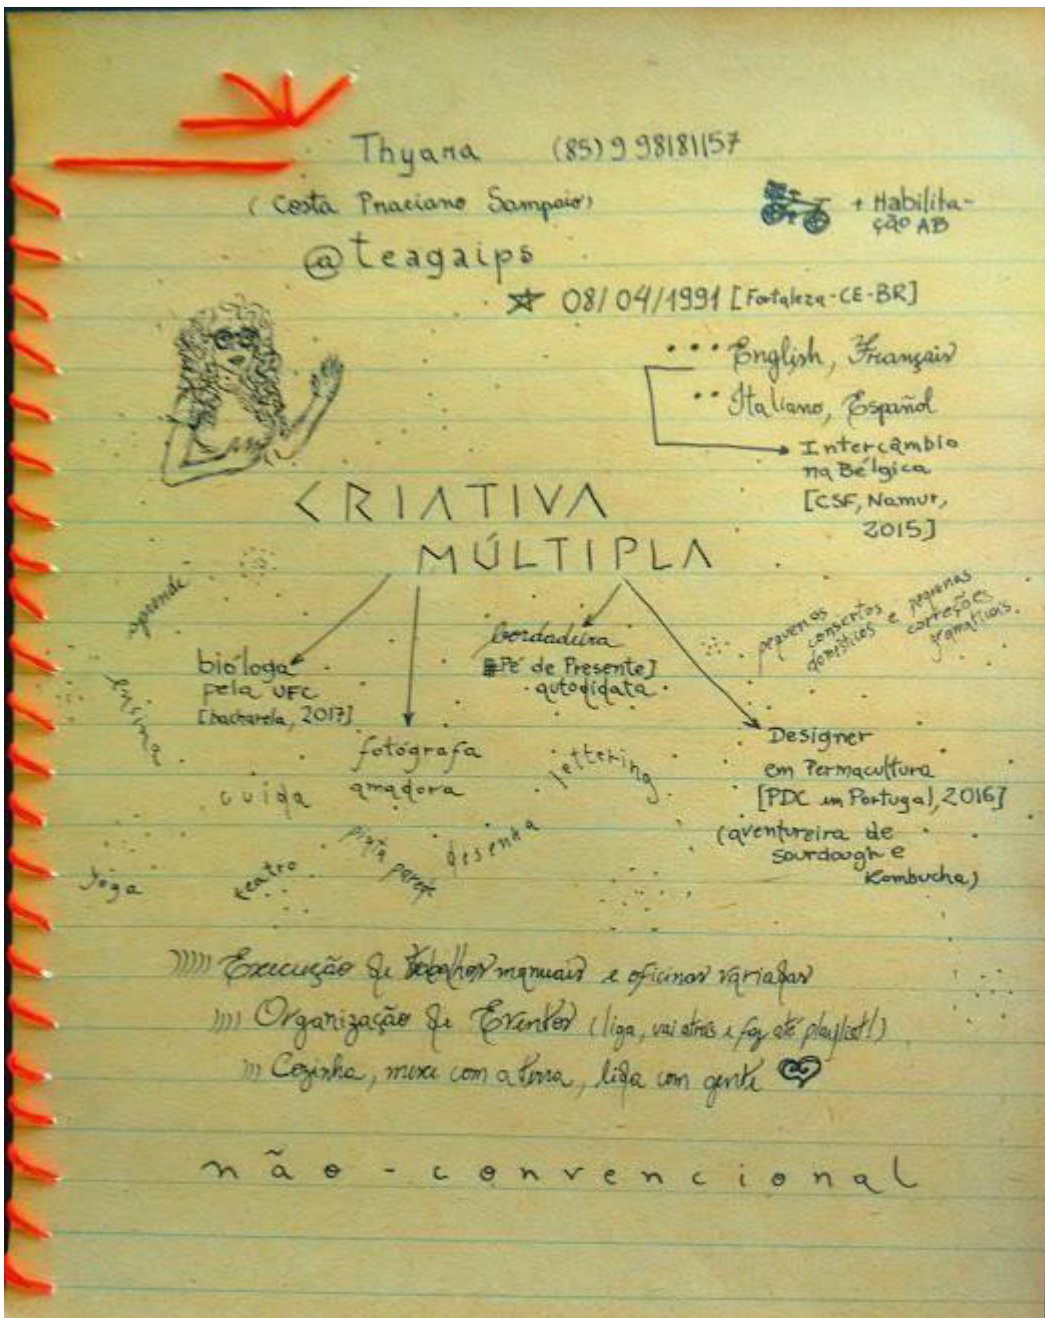 Thyana (85) 9 98181157
(Costa Praciano Sampaio)
+ Habilita-
ção AB
@teagaips
08/04/1991 [Fortaleza-CE-BR]
••• English, Français
•• Italiano, Español
Intercâmbio
na Bélgica
[CSF, Namur,
2015]
CRIATIVA
MÚLTIPLA
aprende
ensina
bióloga
pela UFC
[bacharela, 2017]
bordadeira
[Pé de Presente]
autodidata
pequenos
consertos
domésticos e pequenas
correções
gramaticais.
fotógrafa
amadora
lettering
Designer
em Permacultura
[PDC em Portugal, 2016]
(aventureira de
sourdough e
Kombucha)
cuida
Yoga
teatro
pinta
parede
desenha
))))) Execução de trabalhos manuais e oficinas variadas
)))) Organização de Eventos (liga, vai atrás e faz até playlist!)
))) Cozinha, mexe com a terra, lida com gente
não-convencional